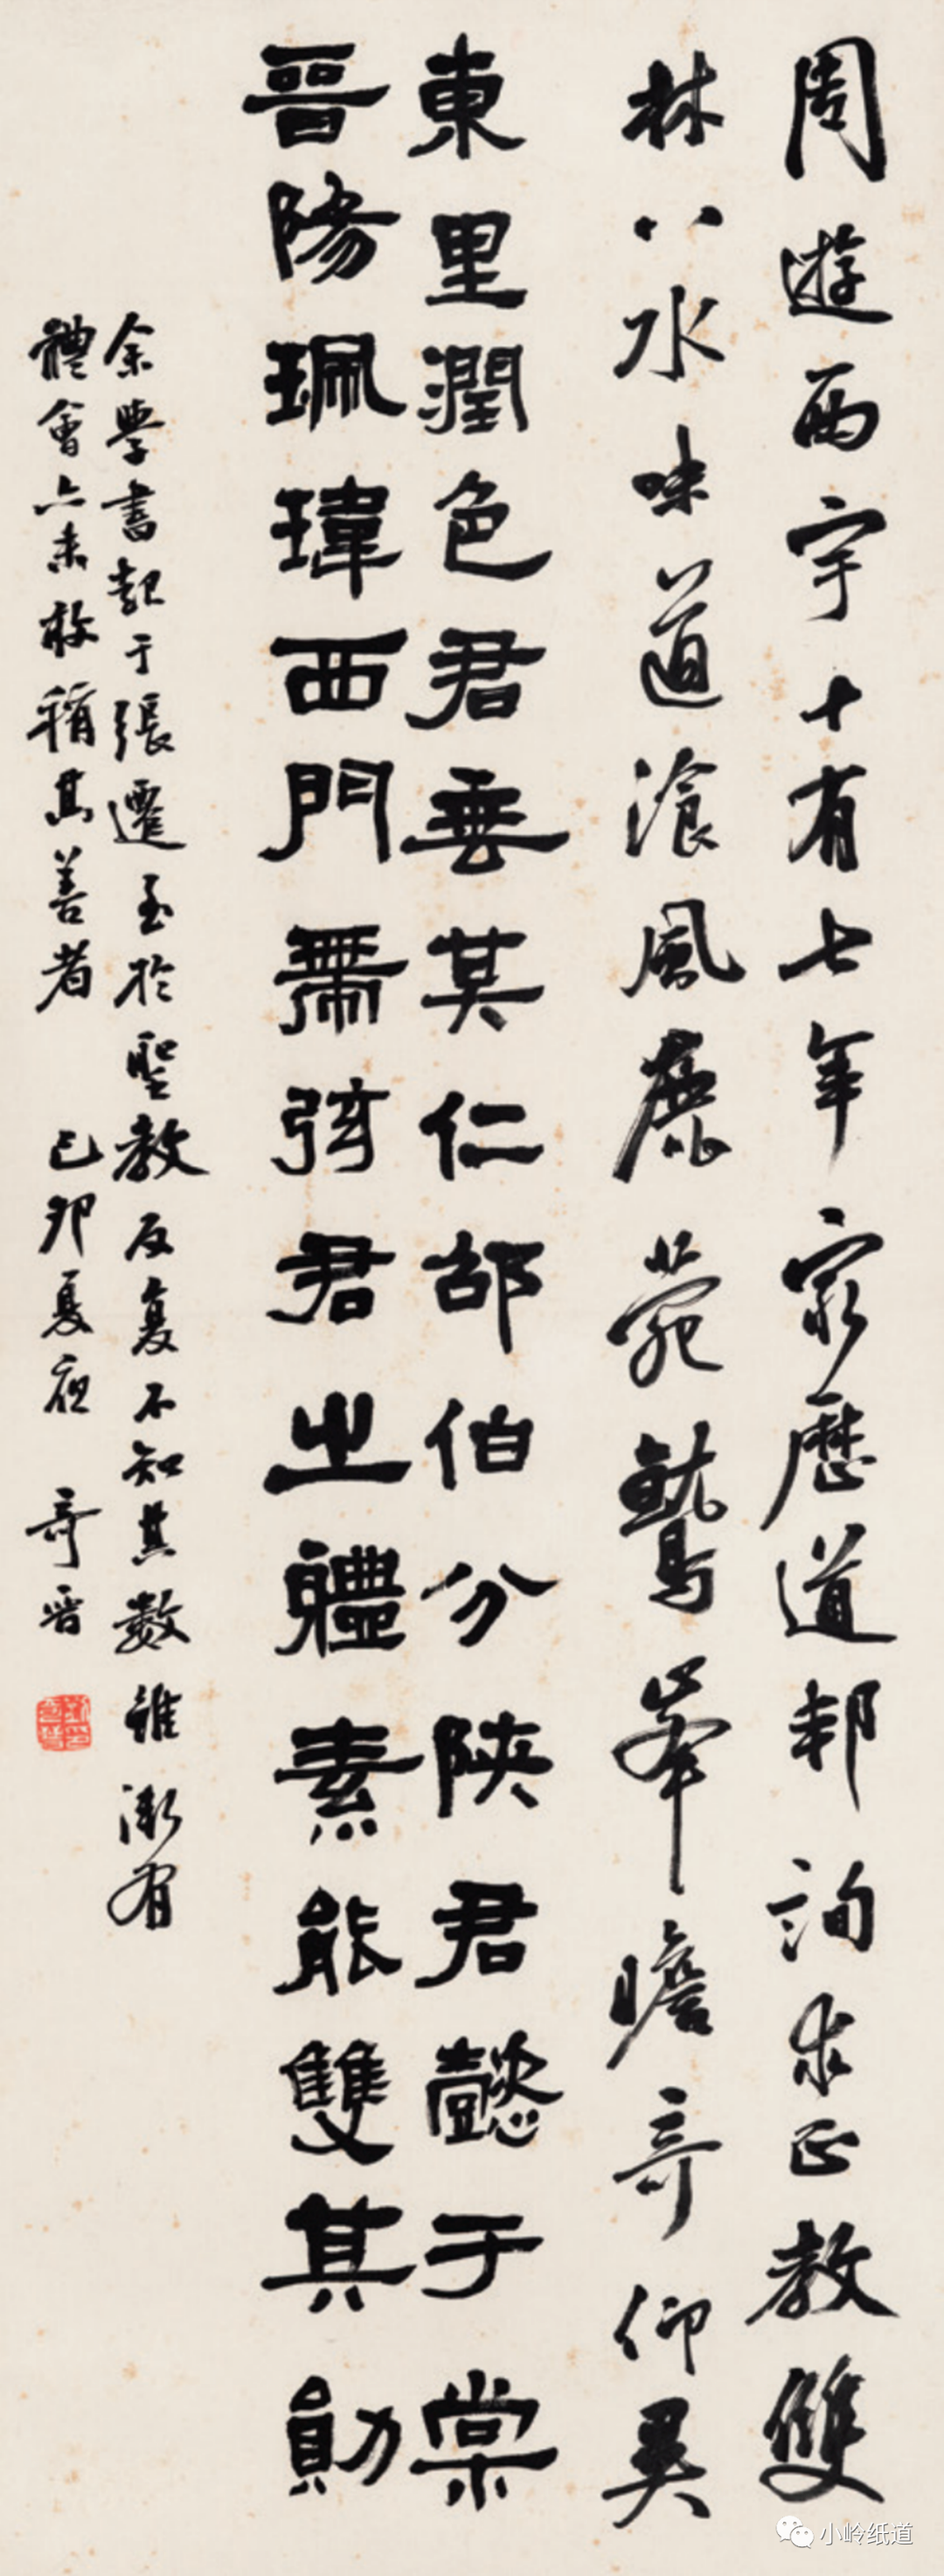 周遊西宇十有七年窮歷道邦詢求正教雙
林八水味道湌風鹿菀鷲峯瞻奇仰異
東里潤色君垂其仁邵伯分陝君懿于棠
晉陽珮瑋西門帶弦君之體素能雙其勛
余學書起于張遷至於聖教反复不知其數雖漸有
體會亦未敢稱其善者 己卯夏夜 奇晋
小岭纸道